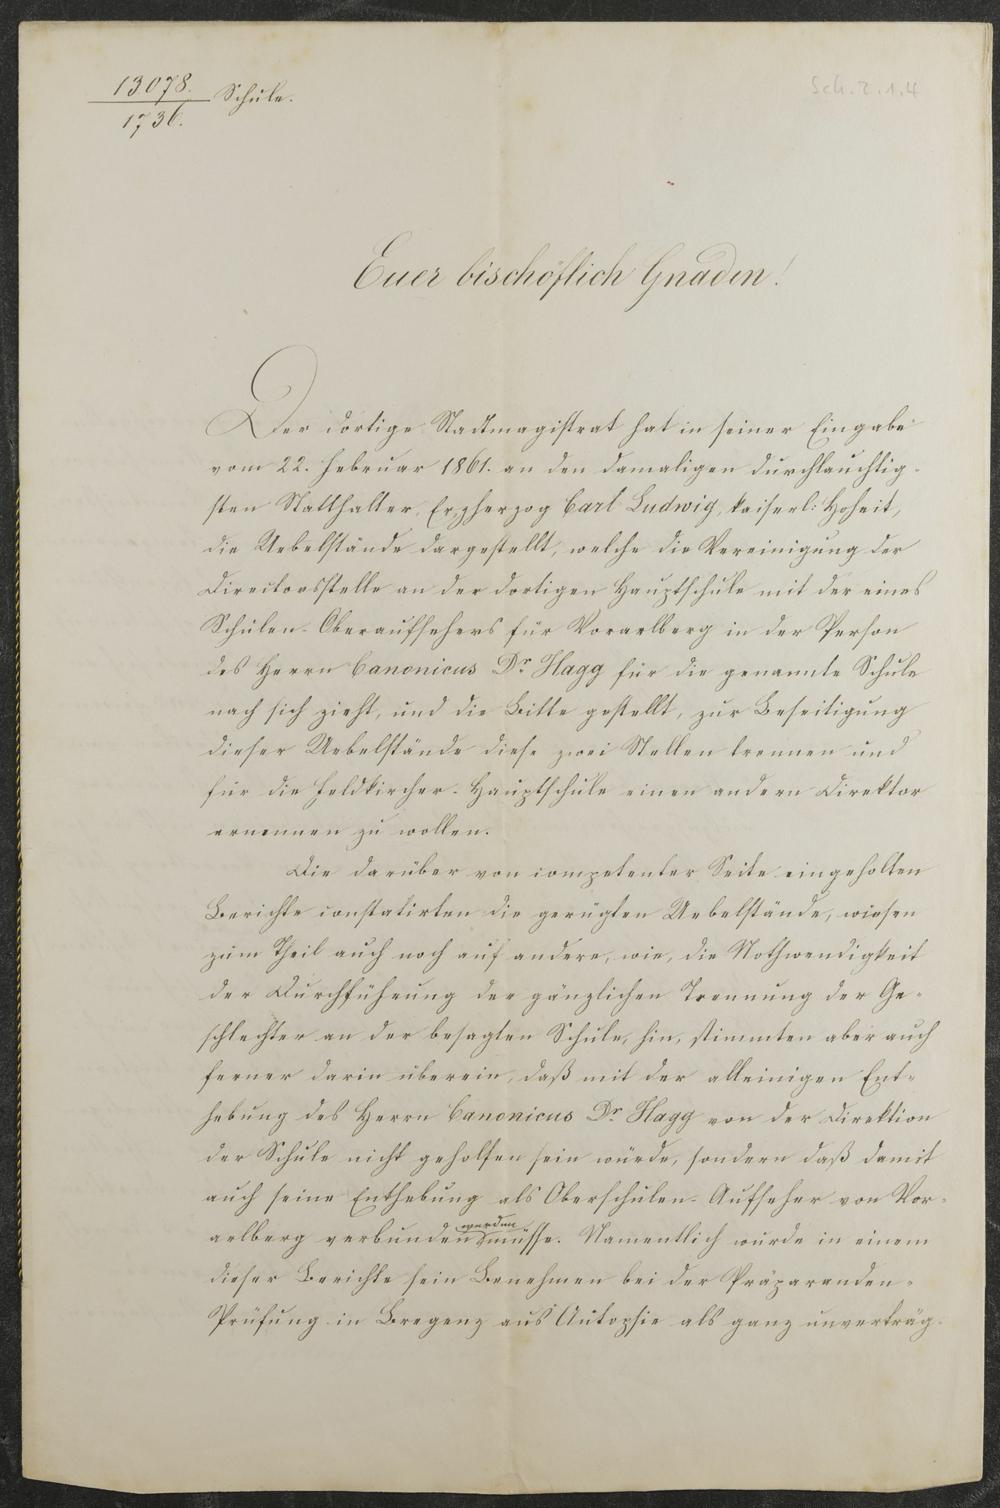 13078. Schule.
1736.
Sch. 2.1.4
Euer bischöflich Gnaden!
Der dortige Stadtmagistrat hat in seiner Eingabe
vom 22. Februar 1861. an den damaligen durchlauchtig-
sten Statthalter, Erzherzog Carl Ludwig, kaiserl: Hoheit,
die Uebelstände dargestellt, welche die Vereinigung der
Directorsstelle an der dortigen Hauptschule mit der eines
Schulen-Oberaufsehers für Vorarlberg in der Person
des Herrn Canonicus Dr. Hagg für die genannte Schule
nach sich zieht, und die Bitte gestellt, zur Beseitigung
dieser Uebelstände diese zwei Stellen trennen und
für die Feldkircher-Hauptschule einen andern Direktor
ernennen zu wollen.
Die darüber von competenter Seite eingeholten
Berichte constatirten die gerügten Uebelstände, wiesen
zum Theil auch noch auf andere, wie, die Nothwendigkeit
der Durchführung der gänzlichen Trennung der Ge-
schlechter an der besagten Schule, hin, stimmten aber auch
ferner darin überein, daß mit der alleinigen Ent-
hebung des Herrn Canonicus Dr. Hagg von der Direktion
der Schule nicht geholfen sein würde, sondern daß damit
auch seine Enthebung als Oberschulen-Aufseher von Vor-
arlberg verbunden werden müsse. Namentlich wurde in einem
dieser Berichte sein Benehmen bei der Präparanden-
Prüfung in Bregenz aus Autopsie als ganz unverträg-